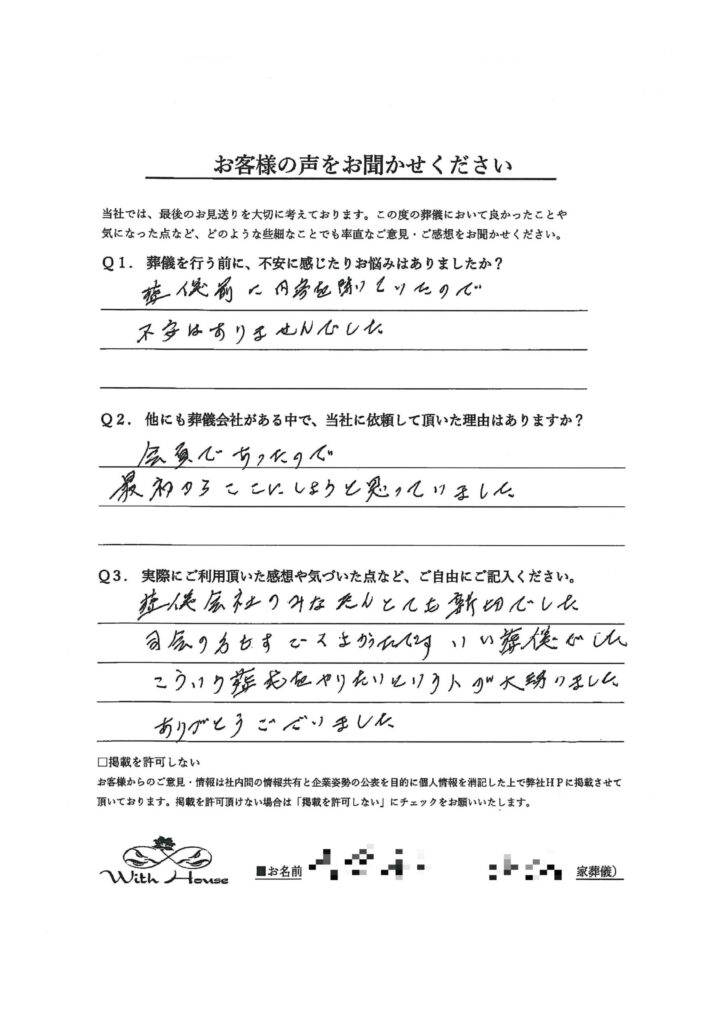 お客様の声をお聞かせください
当社では、最後のお見送りを大切に考えております。この度の葬儀において良かったことや
気になった点など、どのような些細なことでも率直なご意見・ご感想をお聞かせください。
Q1. 葬儀を行う前に、不安に感じたりお悩みはありましたか?
葬儀前に内容を聞いていたので
不安はありませんでした
Q2. 他にも葬儀会社がある中で、当社に依頼して頂いた理由はありますか?
会員であったので
最初からここにしようと思っていました
Q3. 実際にご利用頂いた感想や気づいた点など、ご自由にご記入ください。
葬儀会社のみなさんとても親切でした
司会の方もすごくよかったです いい葬儀でした
こういう葬式をやりたいという人が大勢いました
ありがとうございました
□掲載を許可しない
お客様からのご意見・情報は社内間の情報共有と企業姿勢の公表を目的に個人情報を消記した上で弊社HPに掲載させて
頂いております。掲載を許可頂けない場合は「掲載を許可しない」にチェックをお願いいたします。
With House
■お名前 家葬儀)